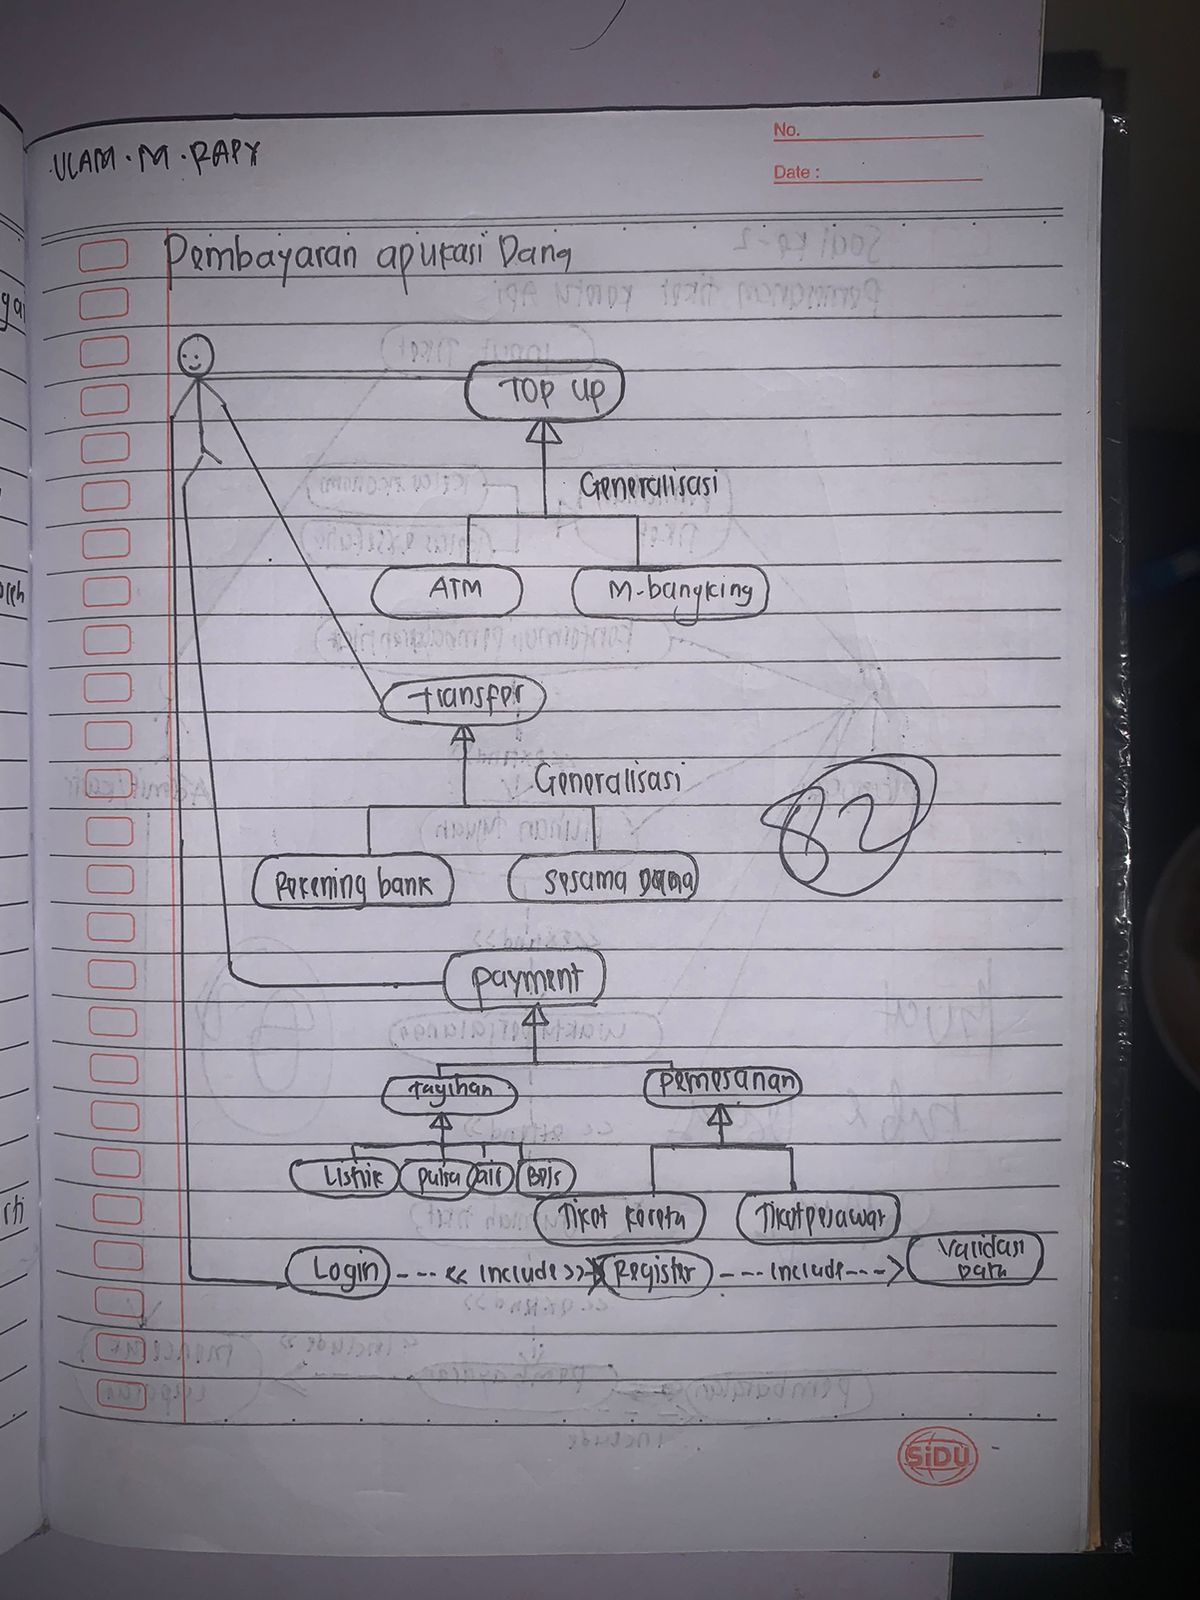 ULAM . M . RAPY
No.
Date :
Pembayaran aplikasi Dana
TOP UP
Generalisasi
ATM
M-bangking
Transfer
Generalisasi
Rekening bank
Sesama Dana
82
payment
Tagihan
Pemesanan
Listrik
pulsa
air
BPJS
Tiket kereta
Tiket pesawat
Login --- << include >> Register --- include ---> Validasi
Data
SiDU